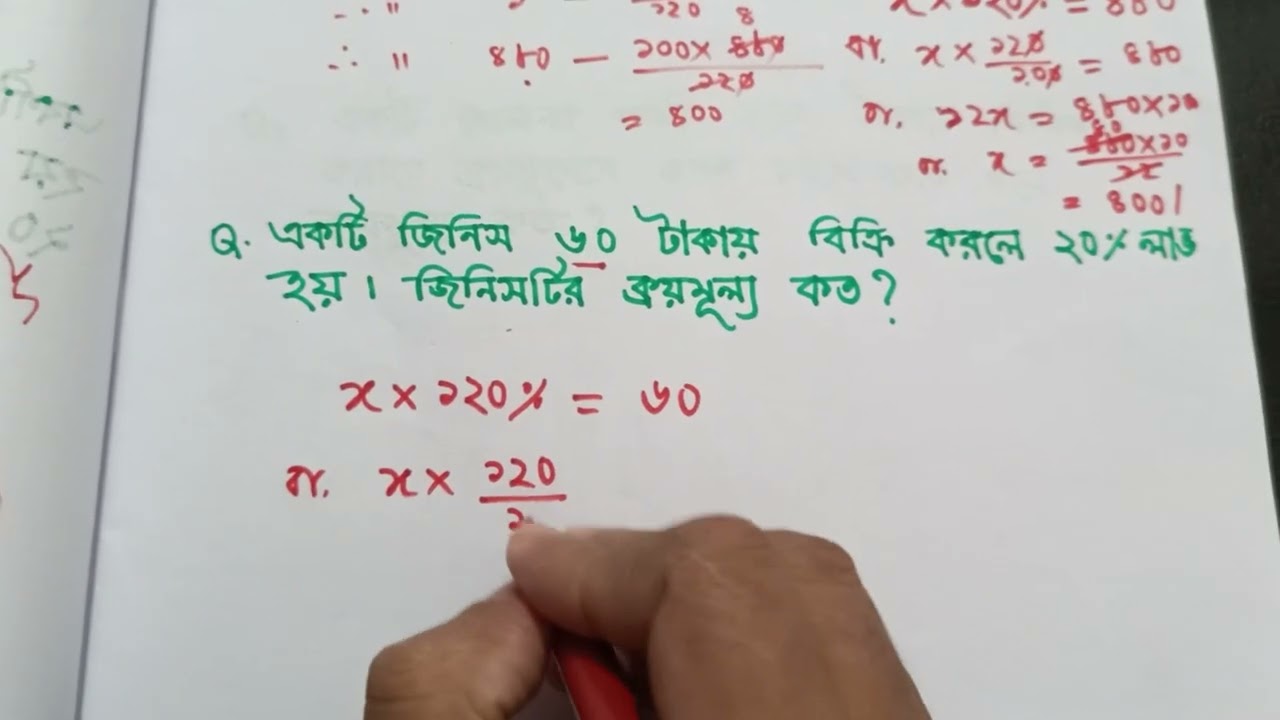 ∴ " ৪৮০ — ১০০× ৪৮০ / ১২০
= ৪০০
বা. x × ১২০ / ১০০ = ৪৮০
বা. ১২x = ৪৮০×১০
বা. x = ৪৮০×১০ / ১২
= ৪০০/
Q. একটি জিনিস ৬০ টাকায় বিক্রি করলে ২০% লাভ
হয়। জিনিসটির ক্রয়মূল্য কত?
x × ১২০% = ৬০
বা. x × ১২০ / ১